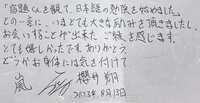 「宿題くんを観て、日本語の勉強を始めました。」
この一言に、いまとても大きな励みを頂きましたし、
お会いすることが出来た ご縁を感じます。
とても嬉しかったです ありがとう
どうかお身体には気を付けて
嵐 櫻井翔
2023年8月13日